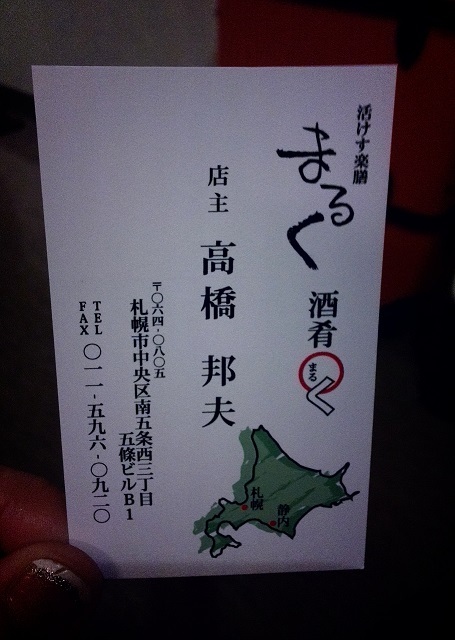 活けす楽膳
まるく
酒肴
まる
く
店主 高橋 邦夫
〒〇六四-〇八〇五
札幌市中央区南五条西三丁目
五條ビルB1
TEL
FAX
〇一一-五九六-〇九二〇
札幌
静内